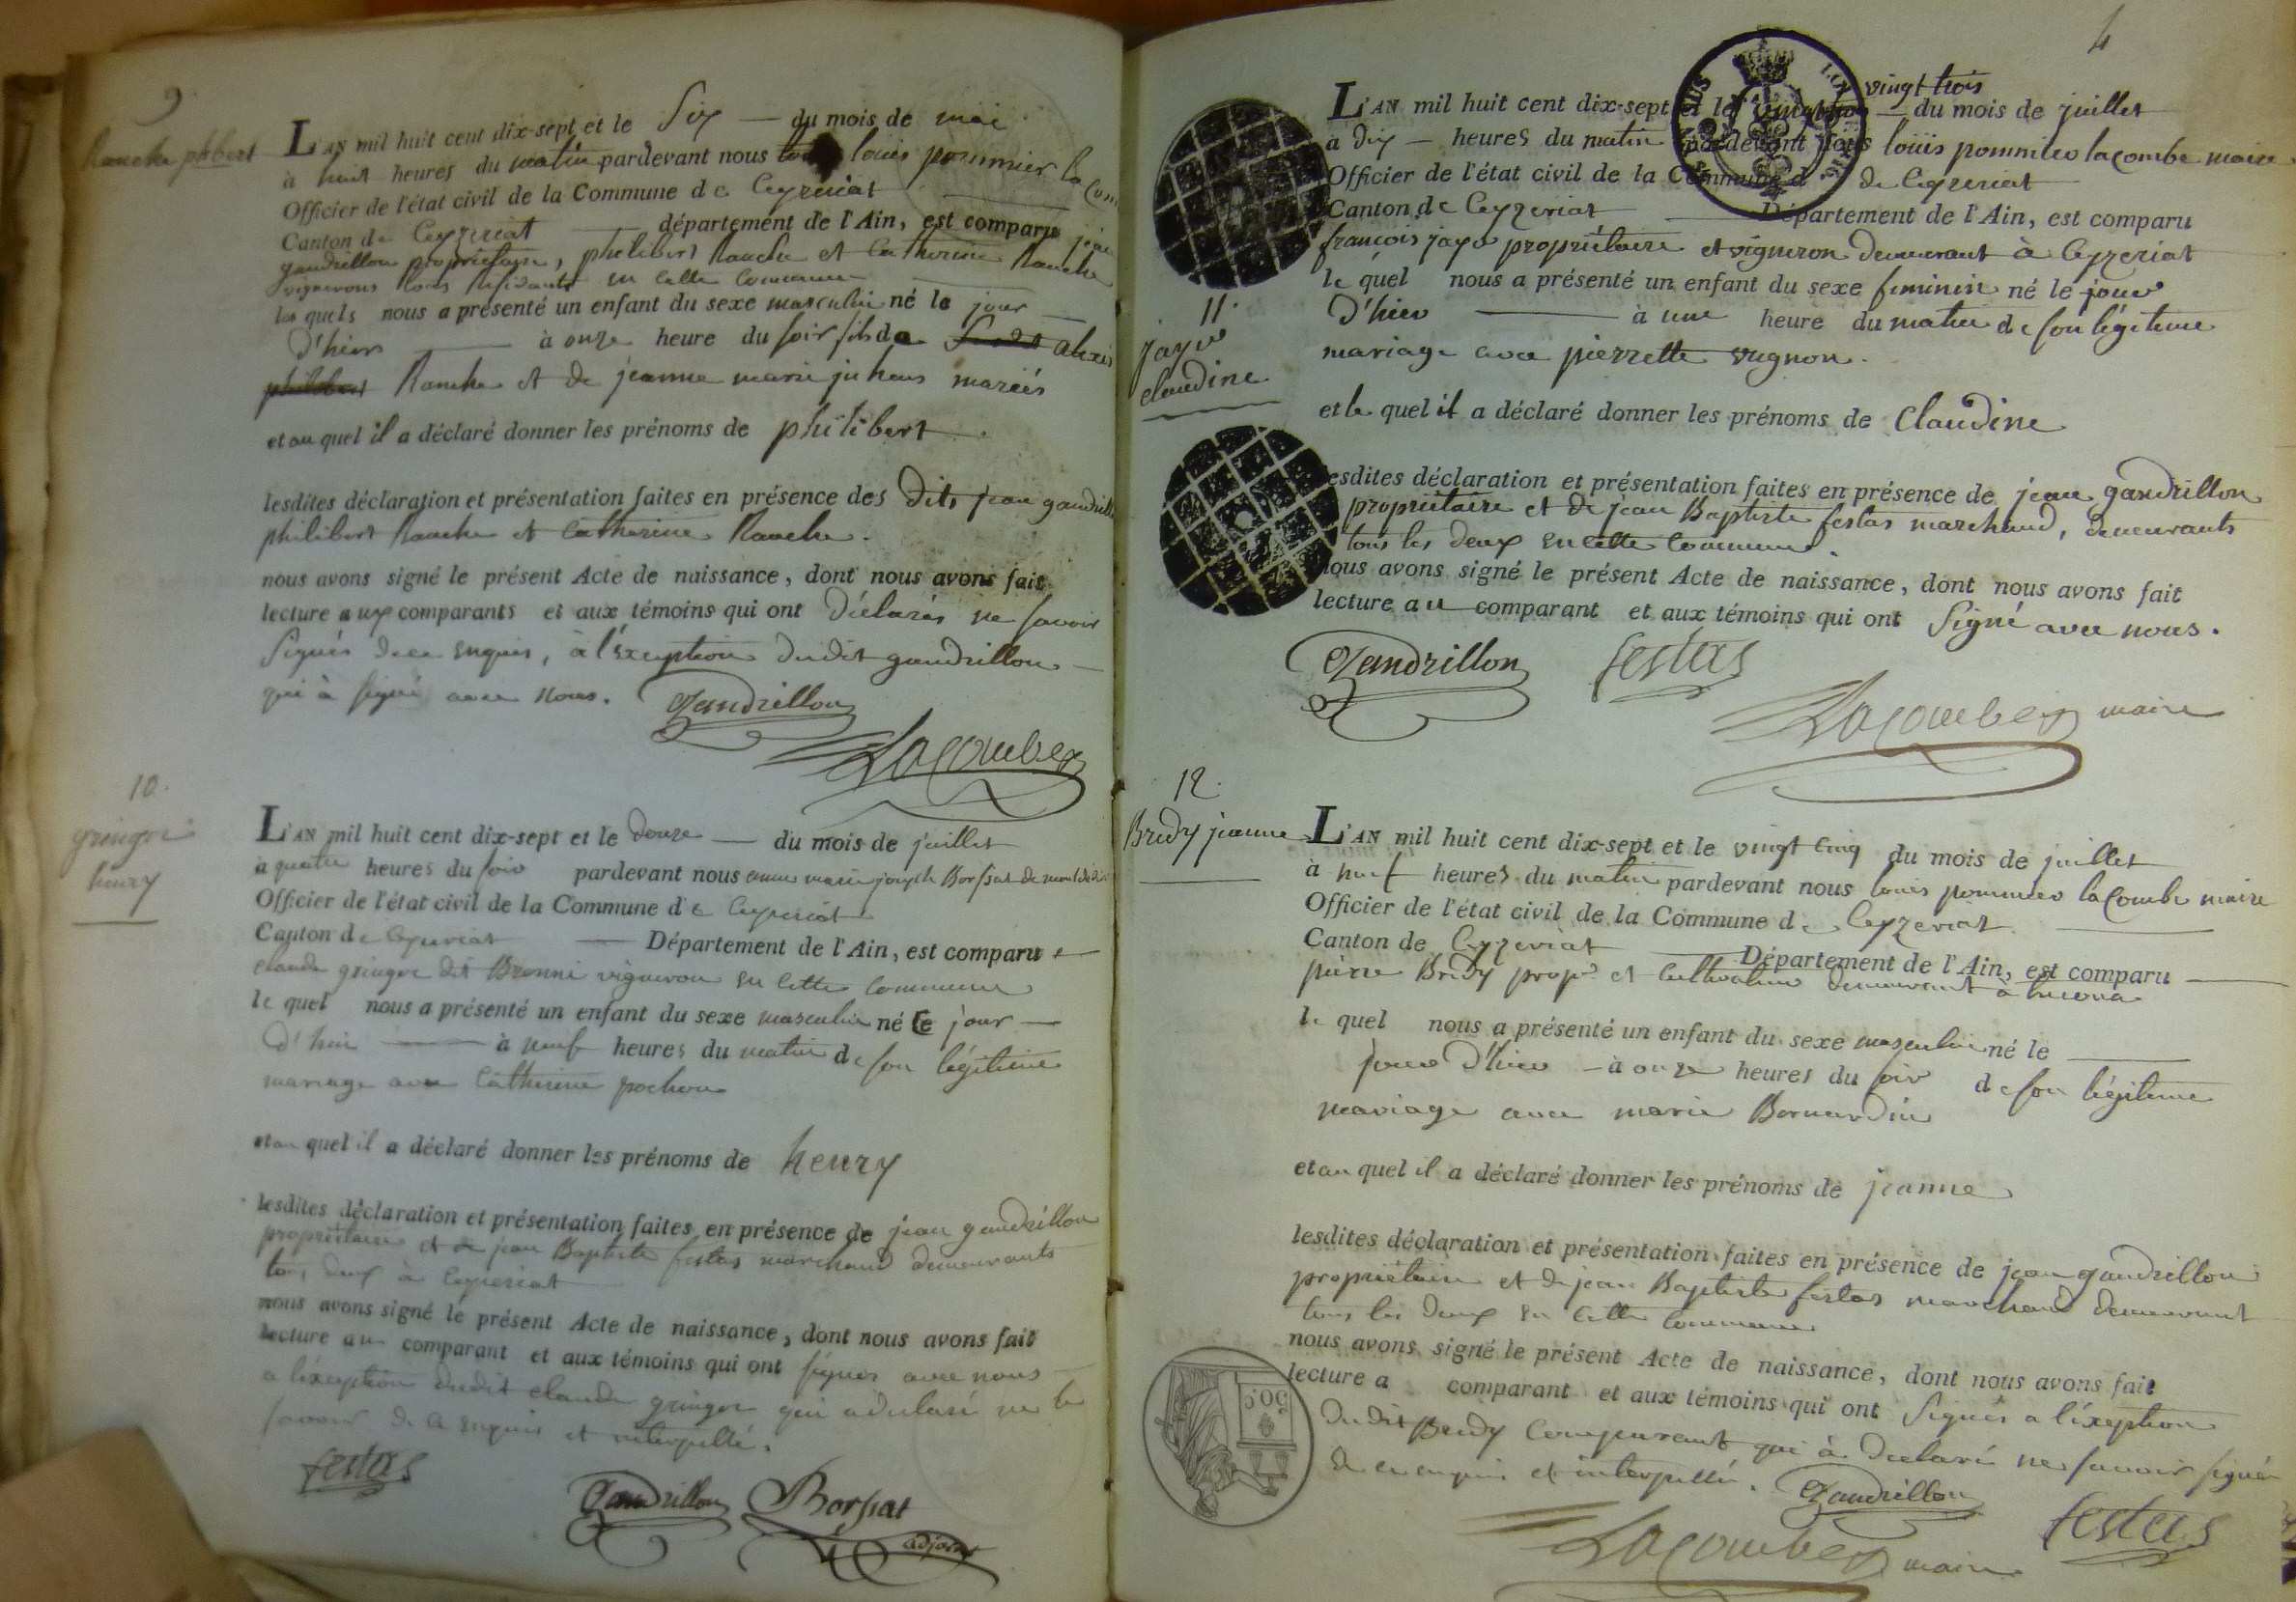 9
Ranche phbert
L'AN mil huit cent dix-sept et le Six — du mois de mai
à huit heures du matin pardevant nous louis pommier la Com
Officier de l'état civil de la Commune de Ceyzeriat
Canton de Ceyzeriat département de l'Ain, est comparu jean
gaudrillon propriétaire, philibert Ranche et Catherine Ranche
vignerons tous Résidants en cette commune
les quels nous a présenté un enfant du sexe masculin né le jour
d'hier à onze heure du soir fils de alexis
philibert Ranche et de jeanne marie mariés
et au quel il a déclaré donner les prénoms de philibert.
lesdites déclaration et présentation faites en présence des Dits jean gaudrillon
philibert Ranche et Catherine Ranche.
nous avons signé le présent Acte de naissance, dont nous avons fait
lecture aux comparants et aux témoins qui ont Déclarés ne savoir
Signés de ce enquis, à l'exception dudit gaudrillon
qui à signé avec nous. Gaudrillon
Lacombe
10.
gringoz
henry
L'AN mil huit cent dix-sept et le douze — du mois de juillet
à quatre heures du soir pardevant nous marie joseph Borssat
Officier de l'état civil de la Commune de Ceyzeriat
Canton de Ceyzeriat — Département de l'Ain, est comparu
claude gringoz dit vigneron en cette commune
le quel nous a présenté un enfant du sexe masculin né le jour —
d'hier — à neuf heures du matin de son légitime
mariage avec Catherine pochon
et au quel il a déclaré donner les prénoms de henry
lesdites déclaration et présentation faites en présence de jean gaudrillon
propriétaire et de jean Baptiste festas marchand demeurants
tous deux à Ceyzeriat
nous avons signé le présent Acte de naissance, dont nous avons fait
lecture au comparant et aux témoins qui ont signés avec nous
a l'exception dudit claude gringoz qui a déclaré ne le
savoir de ce enquis et interpellé.
festas
Gaudrillon Borssat
adjoint
4
vingt trois
L'AN mil huit cent dix-sept et le — du mois de juillet
à dix — heures du matin pardevant nous louis pommier lacombe maire
Officier de l'état civil de la Commune d de Ceyzeriat
Canton de Ceyzeriat — Département de l'Ain, est comparu
françois jayr propriétaire et vigneron demeurant à Ceyzeriat
le quel nous a présenté un enfant du sexe feminin né le jour
D'hier — à une heure du matin de son légitime
mariage avec pierrette vugnon.
11.
jayr
claudine
et le quel il a déclaré donner les prénoms de Claudine
lesdites déclaration et présentation faites en présence de jean gaudrillon
propriétaire et de jean Baptiste festas marchand, demeurants
tous les deux en cette commune.
nous avons signé le présent Acte de naissance, dont nous avons fait
lecture au comparant et aux témoins qui ont Signé avec nous.
Gaudrillon festas
Lacombe maire
12.
Bredy jeanne
L'AN mil huit cent dix-sept et le vingt Cinq du mois de juillet
à heures du matin pardevant nous louis pommier lacombe maire
Officier de l'état civil de la Commune de Ceyzeriat
Canton de Ceyzeriat — Département de l'Ain, est comparu
pierre Bredy prop.re et Cultivateur demeurant à
le quel nous a présenté un enfant du sexe masculin né le
jour D'hier — à onze heures du soir de son légitime
mariage avec marie Bernardin
et au quel il a déclaré donner les prénoms de jeanne
lesdites déclaration et présentation faites en présence de jean gaudrillon
propriétaire et de jean Baptiste festas marchand demeurant
tous les deux en cette commune
nous avons signé le présent Acte de naissance, dont nous avons fait
lecture a comparant et aux témoins qui ont Signés a l'exeption
du dit Bredy Comparant qui à Déclaré ne savoir signer
de ce enquis et interpellé. Gaudrillon
Lacombe maire festas
50c